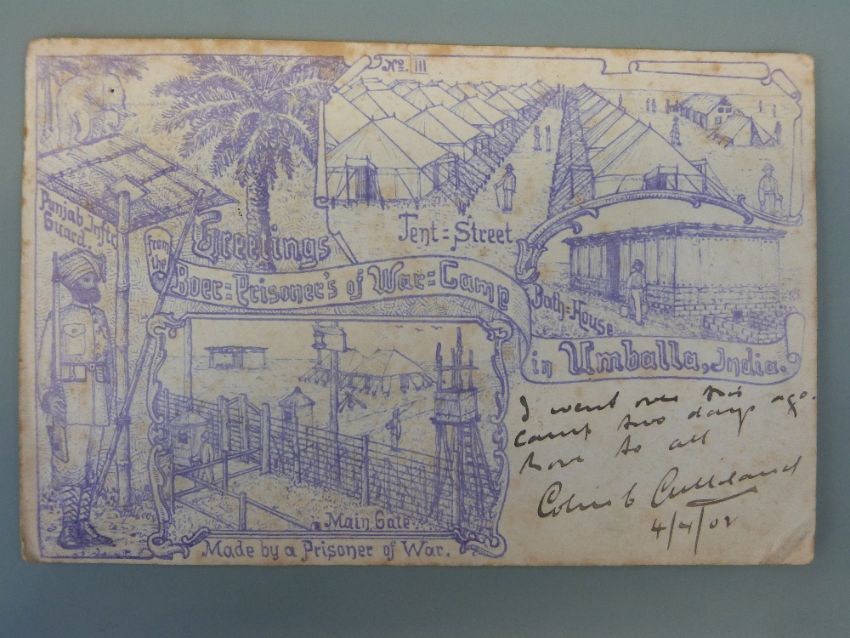 No. III
Punjab Inftr
Guard
Tent-Street
Greetings
from
the
Boer-Prisoner's of War-Camp
Bath-House
in Umballa, India.
Main Gate.
Made by a Prisoner of War.
I went over this
camp two days ago.
love to all
Colin
4/4/02